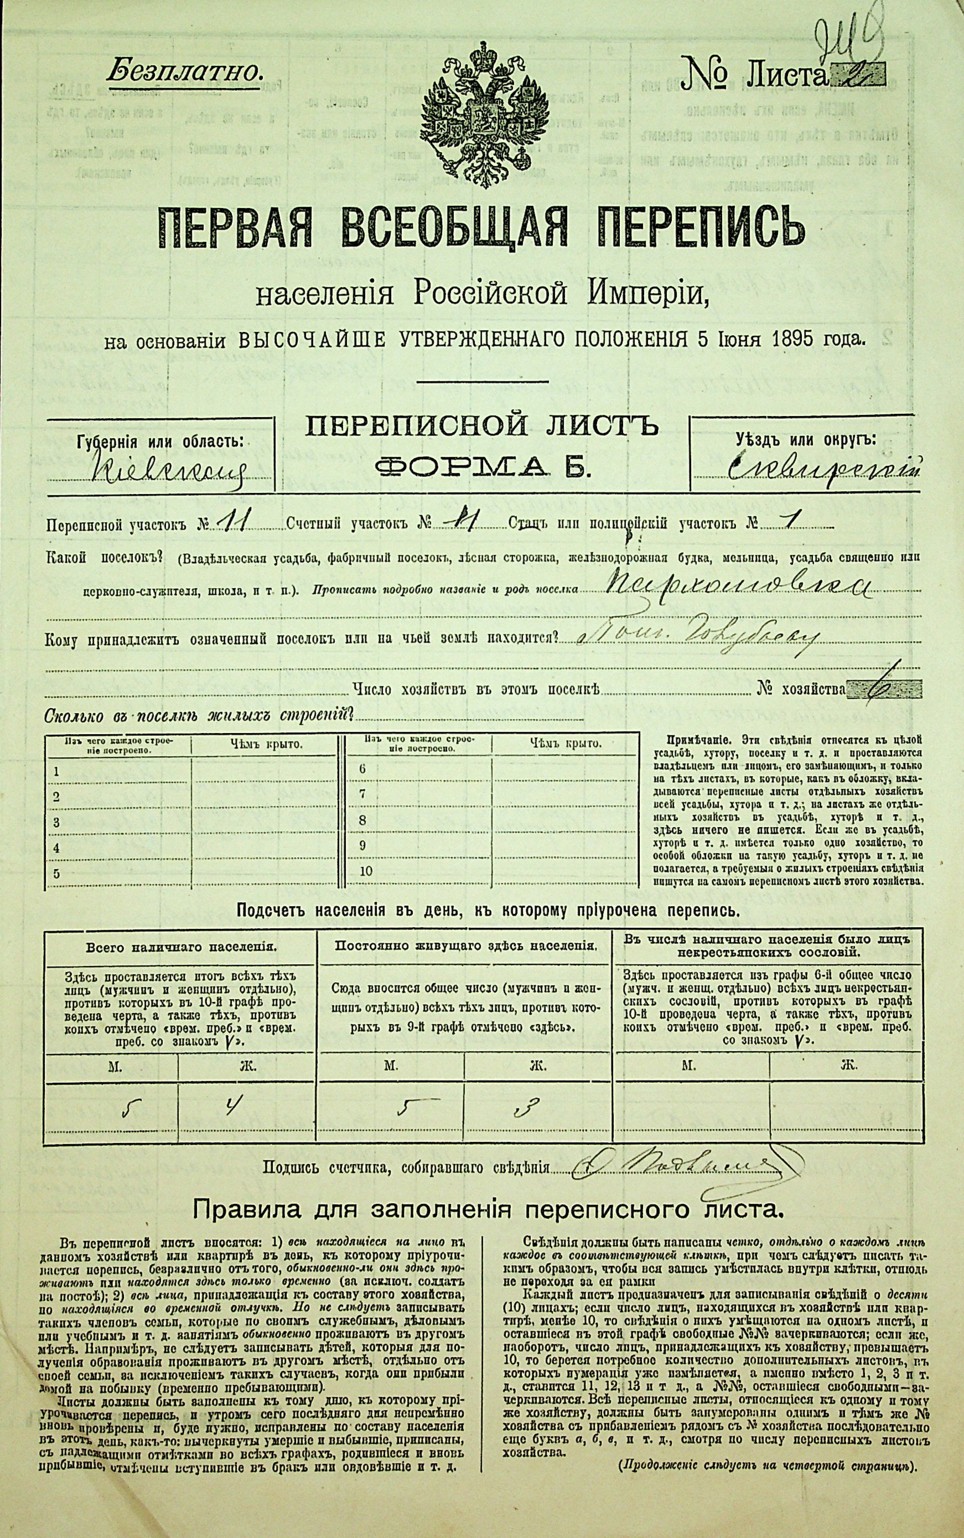 Безплатно.
№ Листа
ПЕРВАЯ ВСЕОБЩАЯ ПЕРЕПИСЬ
населенія Россійской Имперіи,
на основаніи ВЫСОЧАЙШЕ УТВЕРЖДЕННАГО ПОЛОЖЕНІЯ 5 Іюня 1895 года.
ПЕРЕПИСНОЙ ЛИСТЪ
ФОРМА Б.
Губернія или область:
Кіевская
Уѣздъ или округъ:
Сквирскій
Переписной участокъ № 11 Счетный участокъ № 4 Станъ или полицейскій участокъ № 1
Какой поселокъ? (Владѣльческая усадьба, фабричный поселокъ, лѣсная сторожка, желѣзнодорожная будка, мельница, усадьба священно или
церковно-служителя, школа, и т. п.). Прописать подробно названіе и родъ поселка Пархомовка
Кому принадлежитъ означенный поселокъ или на чьей землѣ находится?
Число хозяйствъ въ этомъ поселкѣ № хозяйства 6
Сколько въ поселкѣ жилыхъ строеній?
Изъ чего каждое строе-
ніе построено.
Чѣмъ крыто.
Изъ чего каждое строе-
ніе построено.
Чѣмъ крыто.
1 6
2 7
3 8
4 9
5 10
Примѣчаніе. Эти свѣдѣнія относятся къ цѣлой
усадьбѣ, хутору, поселку и т. д. и проставляются
владѣльцемъ или лицомъ, его замѣняющимъ, и только
на тѣхъ листахъ, въ которые, какъ въ обложку, вкла-
дываются переписные листы отдѣльныхъ хозяйствъ
всей усадьбы, хутора и т. д.; на листахъ же отдѣль-
ныхъ хозяйствъ въ усадьбѣ, хуторѣ и т. д.,
здѣсь ничего не пишется. Если же въ усадьбѣ,
хуторѣ и т. д. имѣется только одно хозяйство, то
особой обложки на такую усадьбу, хуторъ и т. д. не
полагается, а требуемыя о жилыхъ строеніяхъ свѣдѣнія
пишутся на самомъ переписномъ листѣ этого хозяйства.
Подсчетъ населенія въ день, къ которому пріурочена перепись.
Всего наличнаго населенія.
Здѣсь проставляется итогъ всѣхъ тѣхъ
лицъ (мужчинъ и женщинъ отдѣльно),
противъ которыхъ въ 10-й графѣ про-
ведена черта, а также тѣхъ, противъ
коихъ отмѣчено «врем. преб.» и «врем.
преб. со знакомъ V».
Постоянно живущаго здѣсь населенія.
Сюда вносится общее число (мужчинъ и жен-
щинъ отдѣльно) всѣхъ тѣхъ лицъ, противъ кото-
рыхъ въ 9-й графѣ отмѣчено «здѣсь».
Въ числѣ наличнаго населенія было лицъ
некрестьянскихъ сословій.
Здѣсь проставляется изъ графы 6-й общее число
(мужч. и женщ. отдѣльно) всѣхъ лицъ некрестьян-
скихъ сословій, противъ которыхъ въ графѣ
10-й проведена черта, а также тѣхъ, противъ
коихъ отмѣчено «врем. преб.» и «врем. преб.
со знакомъ V».
М. Ж. М. Ж. М. Ж.
5 4 5 3
Подпись счетчика, собиравшаго свѣдѣнія
Правила для заполненія переписного листа.
Въ переписной листъ вносятся: 1) всѣ находящіеся на лицо въ
данномъ хозяйствѣ или квартирѣ въ день, къ которому пріурочи-
вается перепись, безразлично отъ того, обыкновенно-ли они здѣсь про-
живаютъ или находятся здѣсь только временно (за исключ. солдатъ
на постоѣ); 2) всѣ лица, принадлежащія къ составу этого хозяйства,
но находящіяся во временной отлучкѣ. Но не слѣдуетъ записывать
такихъ членовъ семьи, которые по своимъ служебнымъ, дѣловымъ
или учебнымъ и т. д. занятіямъ обыкновенно проживаютъ въ другомъ
мѣстѣ. Напримѣръ, не слѣдуетъ записывать дѣтей, которыя для по-
лученія образованія проживаютъ въ другомъ мѣстѣ, отдѣльно отъ
своей семьи, за исключеніемъ такихъ случаевъ, когда они прибыли
домой на побывку (временно пребывающими).
Листы должны быть заполнены къ тому дню, къ которому прі-
урочивается перепись, и утромъ сего послѣдняго дня непремѣнно
вновь провѣрены и, буде нужно, исправлены по составу населенія
въ этотъ день, какъ-то: вычеркнуты умершіе и выбывшіе, приписаны,
съ надлежащими отмѣтками во всѣхъ графахъ, родившіеся и вновь
прибывшіе, отмѣчены вступившіе въ бракъ или овдовѣвшіе и т. д.
Свѣдѣнія должны быть написаны четко, отдѣльно о каждомъ лицѣ
каждое въ соотвѣтствующей клѣткѣ, при чемъ слѣдуетъ писать та-
кимъ образомъ, чтобы вся запись умѣстилась внутри клѣтки, отнюдь
не переходя за ея рамки
Каждый листъ предназначенъ для записыванія свѣдѣній о десяти
(10) лицахъ; если число лицъ, находящихся въ хозяйствѣ или квар-
тирѣ, менѣе 10, то свѣдѣнія о нихъ умѣщаются на одномъ листѣ, и
оставшіеся въ этой графѣ свободные №№ вачеркиваются; если же,
наоборотъ, число лицъ, принадлежащихъ къ хозяйству, превышаетъ
10, то берется потребное количество дополнительныхъ листовъ, въ
которыхъ нумерація уже измѣняется, а именно вмѣсто 1, 2, 3 и т.
д., ставится 11, 12, 13 и т. д., а №№, оставшіеся свободными—за-
черкиваются. Всѣ переписные листы, относящіеся къ одному и тому
же хозяйству, должны быть занумерованы однимъ и тѣмъ же №
хозяйства съ прибавленіемъ рядомъ съ № хозяйства послѣдовательно
еще буквъ а, б, в, и т. д., смотря по числу переписныхъ листовъ
хозяйства.
(Продолженіе слѣдуетъ на четвертой страницѣ).